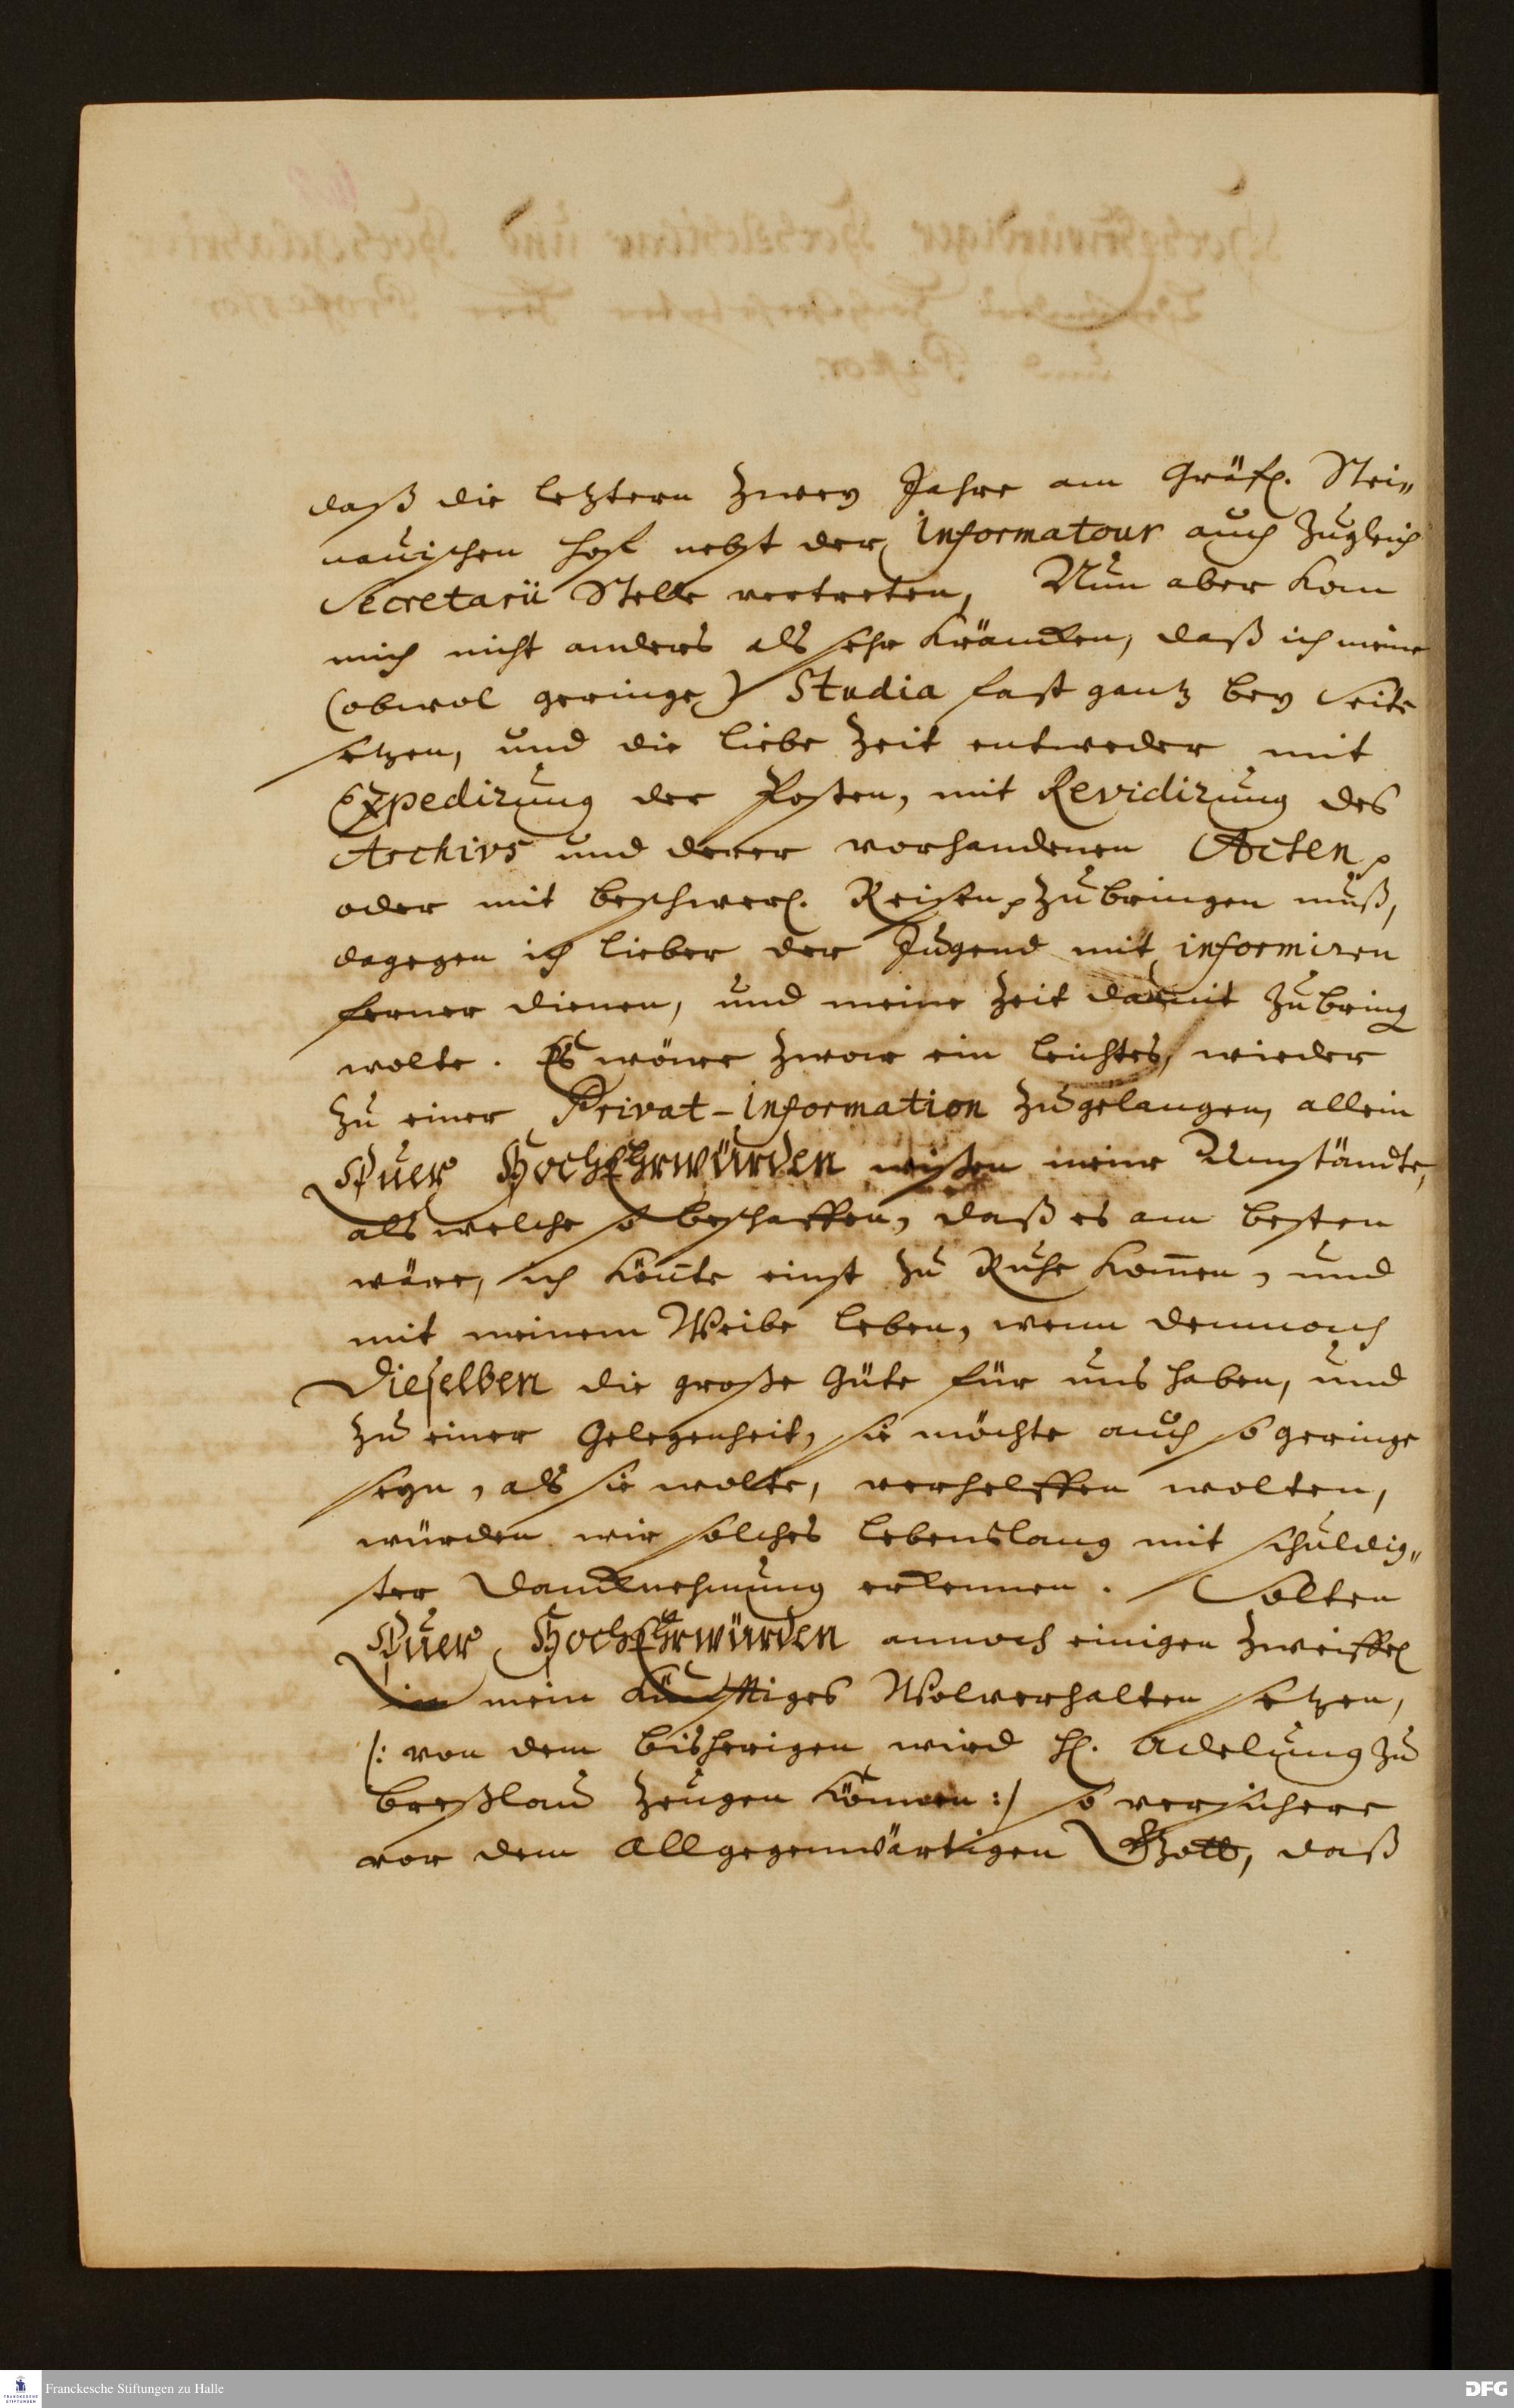 daß die letztern zwey Jahre am Gräfl. Stei„
nauischen Hof nebst der Informatour auch zugleich
Secretarii Stelle vertreten, Nun aber kan
mich nicht anders als sehr kräncken, daß ich meine
(obwol geringe) Studia fast gantz bey Seite
setzen, und die liebe Zeit entweder mit
Expedirung der Posten, mit Revidirung des
Archivs und derer vorhandenen Acten
oder mit beschwerl. Reisen zubringen muß,
dagegen ich lieber der Jugend mit informiren
ferner dienen, und meine Zeit damit zubring
wolte. Es wäre zwar ein leichtes, wieder
zu einer Privat-Information zugelangen, allein
Euer HochEhrwürden wißen meine Umstände,
als welche so beschaffen, daß es am besten
wäre, ich könte einst zu Ruhe kom̄en, und
mit meinem Weibe leben, wenn demnach
Dieselben die große Güte für uns haben, und
zu einer Gelegenheit, sie möchte auch so geringe
seyn, als sie wolte, verhelffen wolten,
würden wir solches lebenslang mit schuldig„
ster Dancknehmung erkennen. Solten
Euer HochEhrwürden annoch einigen Zweiffel
in mein künfftiges Wolverhalten setzen,
/: von dem bisherigen wird H. Adelung zu
Breßlau zeugen können :/ so versichere
vor dem Allgegenwärtigen Gott, daß
Franckesche Stiftungen zu Halle
DFG